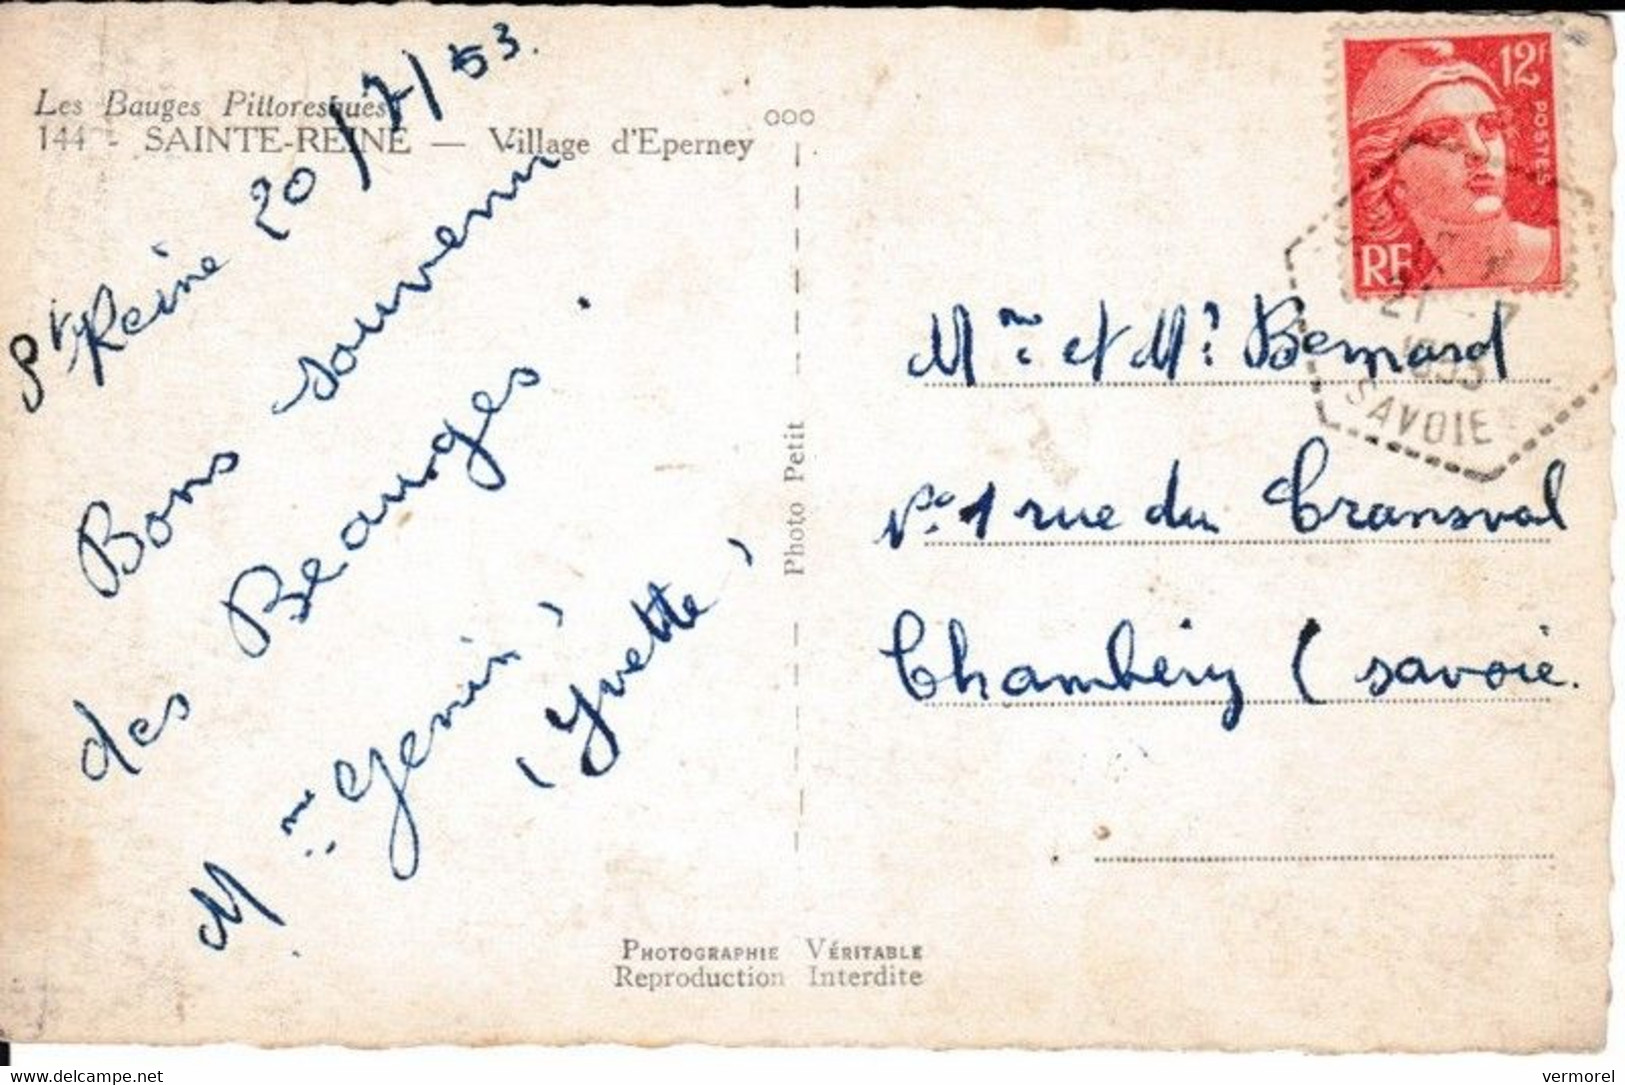 Les Bauges Pittoresques
144 - SAINTE-REINE — Village d'Eperney
Ste Reine 20/7/53.
Bons souvenir
des Beauges.
Mme Genin,
(Yvette)
Photo Petit
PHOTOGRAPHIE VÉRITABLE
Reproduction Interdite
12F
POSTES
RF
21 - 7
1953
SAVOIE
Mme et Mr Bernard
No 1 rue du Transval
Chambéry (savoie.
www.delcampe.net
vermorel